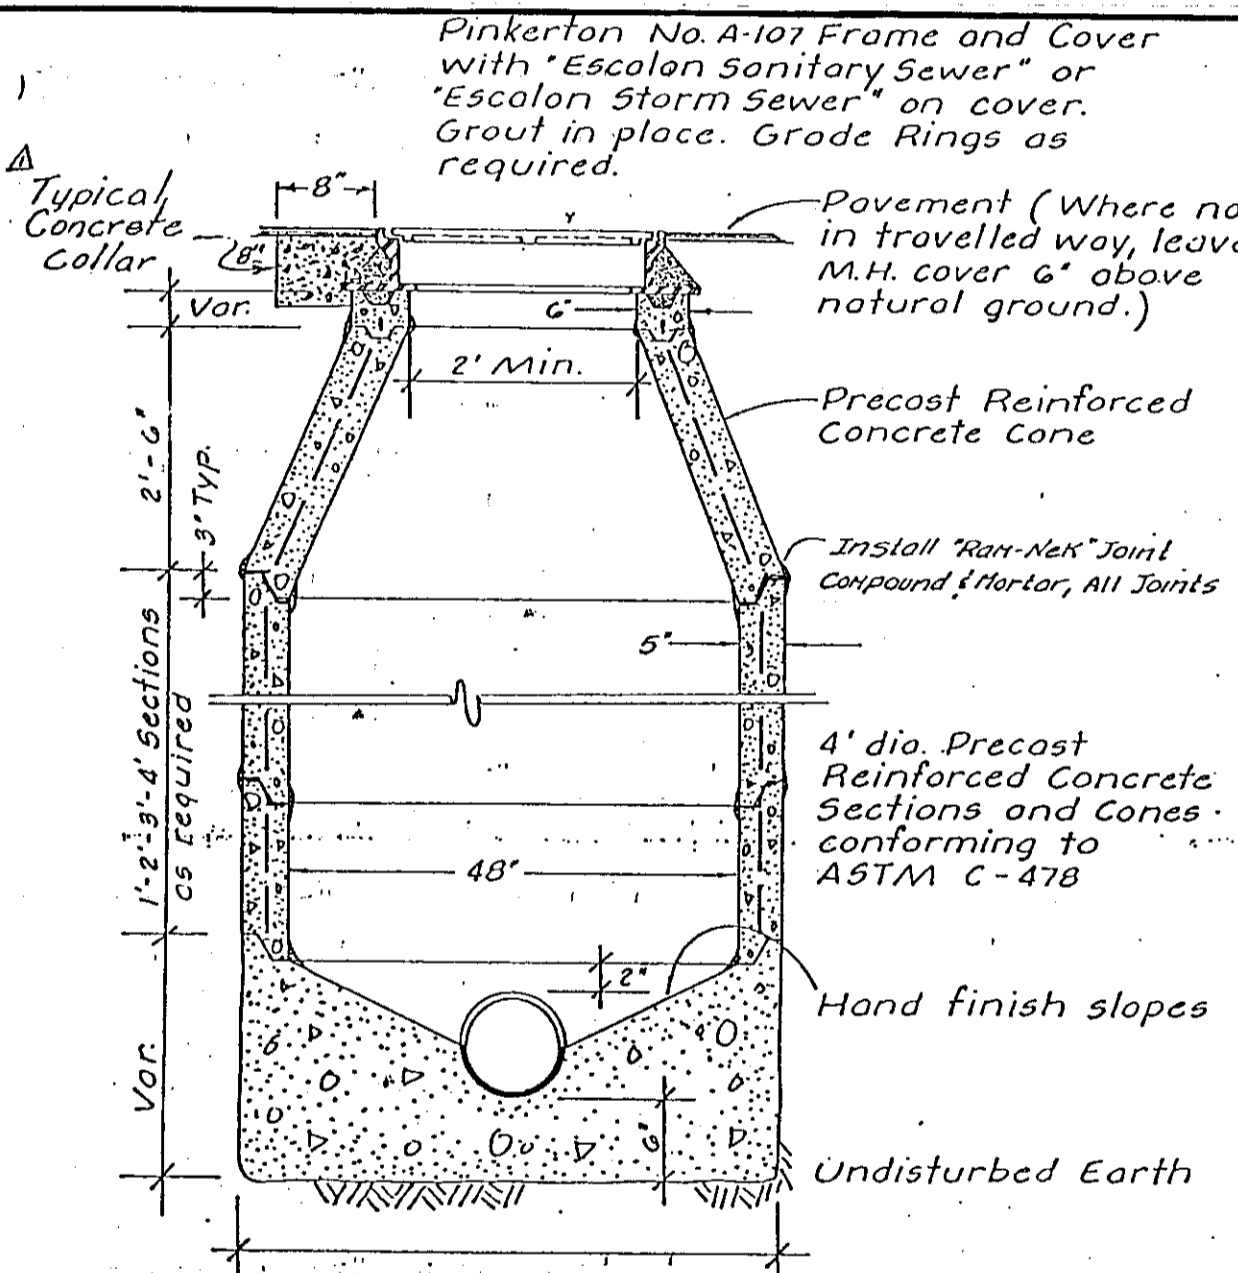 Pinkerton No. A-107 Frame and Cover
with "Escalon Sanitary Sewer" or
"Escalon Storm Sewer" on cover.
Grout in place. Grade Rings as
required.
1
Typical
Concrete
Collar
8"
8"
Var.
Pavement (Where no
in travelled way, leave
M.H. cover 6" above
natural ground.)
6"
2' Min.
Precast Reinforced
Concrete Cone
2'-6"
3" Typ.
Install "Ram-Nek" Joint
Compound & Mortar, All Joints
5"
1'-2'-3'-4' Sections
as required
4' dia. Precast
Reinforced Concrete
Sections and Cones
conforming to
ASTM C-478
48"
2"
Hand finish slopes
Var.
6"
Undisturbed Earth